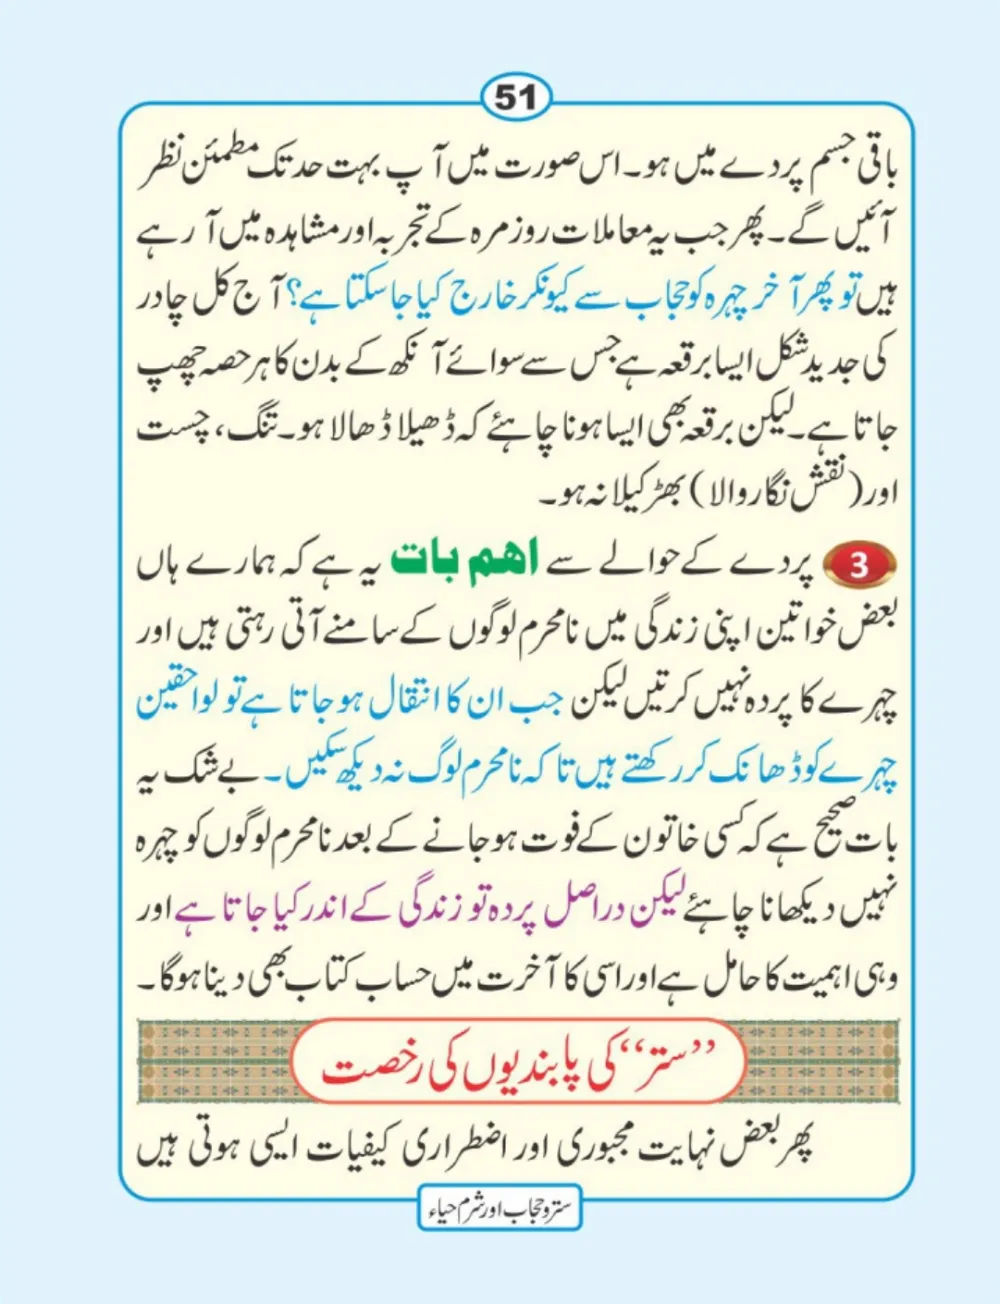 51
باقی جسم پردے میں ہو۔ اس صورت میں آپ بہت حد تک مطمئن نظر
آئیں گے۔ پھر جب یہ معاملات روزمرہ کے تجربہ اور مشاہدہ میں آ رہے
ہیں تو پھر آخر چہرہ کو حجاب سے کیونکر خارج کیا جا سکتا ہے؟ آج کل چادر
کی جدید شکل ایسا برقعہ ہے جس سے سوائے آنکھ کے بدن کا ہر حصہ چھپ
جاتا ہے۔ لیکن برقعہ بھی ایسا ہونا چاہئے کہ ڈھیلا ڈھالا ہو۔ تنگ، چست
اور (نقش نگار والا) بھڑکیلا نہ ہو۔
3 پردے کے حوالے سے اھم بات یہ ہے کہ ہمارے ہاں
بعض خواتین اپنی زندگی میں نامحرم لوگوں کے سامنے آتی رہتی ہیں اور
چہرے کا پردہ نہیں کرتیں لیکن جب ان کا انتقال ہو جاتا ہے تو لواحقین
چہرے کو ڈھانک کر رکھتے ہیں تا کہ نامحرم لوگ نہ دیکھ سکیں۔ بے شک یہ
بات صحیح ہے کہ کسی خاتون کے فوت ہو جانے کے بعد نامحرم لوگوں کو چہرہ
نہیں دیکھانا چاہئے لیکن دراصل پردہ تو زندگی کے اندر کیا جاتا ہے اور
وہی اہمیت کا حامل ہے اور اسی کا آخرت میں حساب کتاب بھی دینا ہوگا۔
”ستر“ کی پابندیوں کی رخصت
پھر بعض نہایت مجبوری اور اضطراری کیفیات ایسی ہوتی ہیں
ستر و حجاب اور شرم حیاء